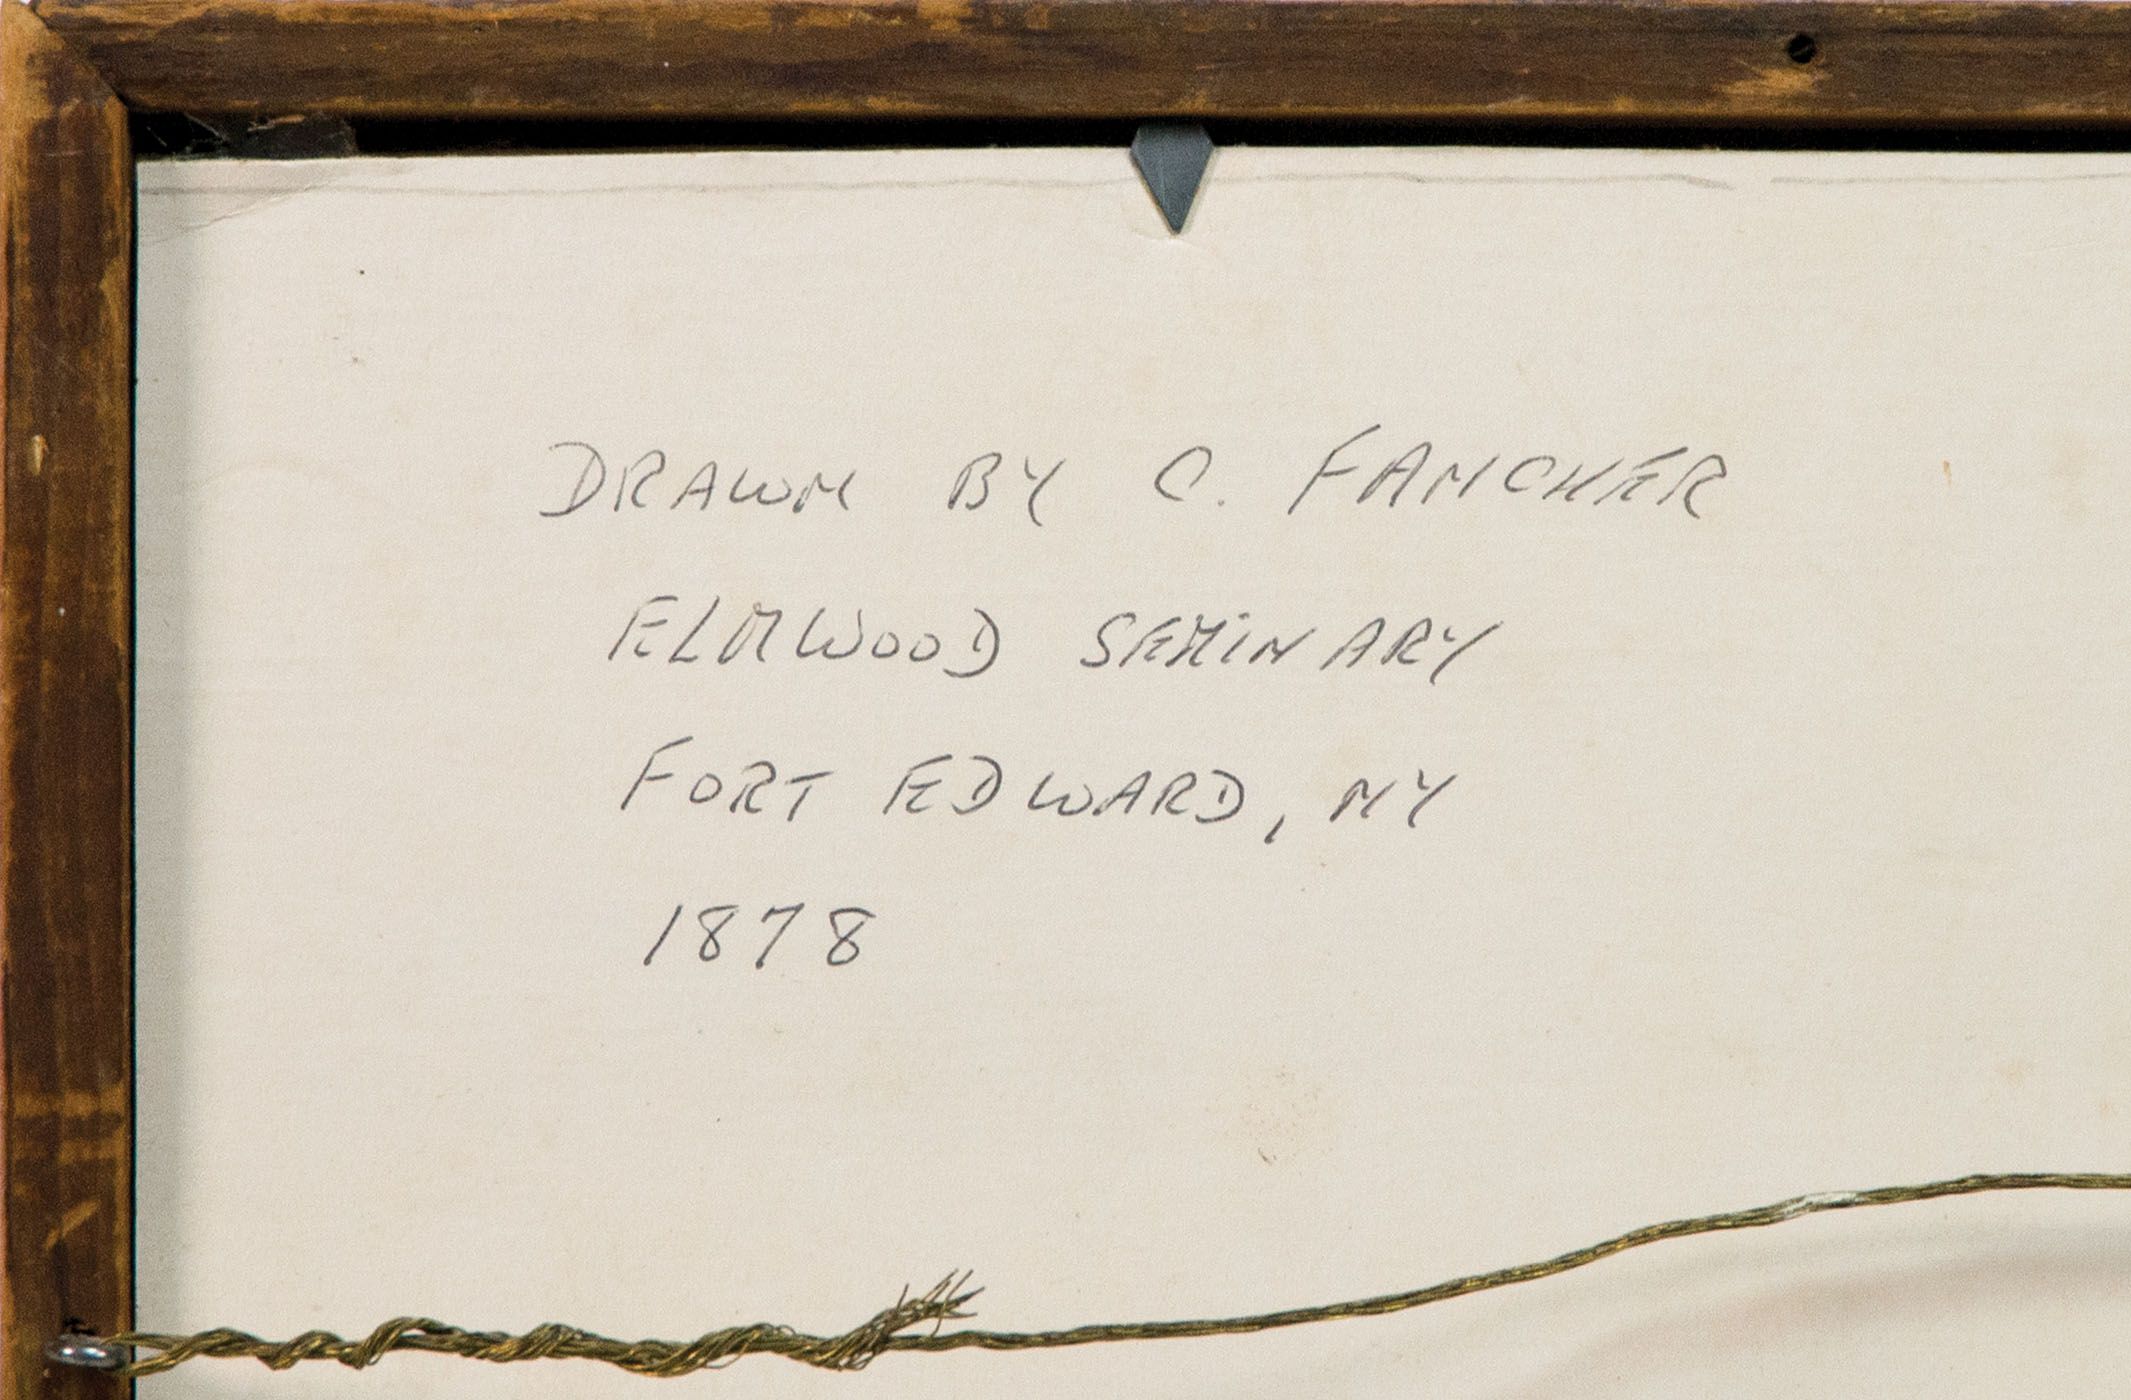 DRAWN BY C. FANCHER
ELMWOOD SEMINARY
FORT EDWARD, NY
1878